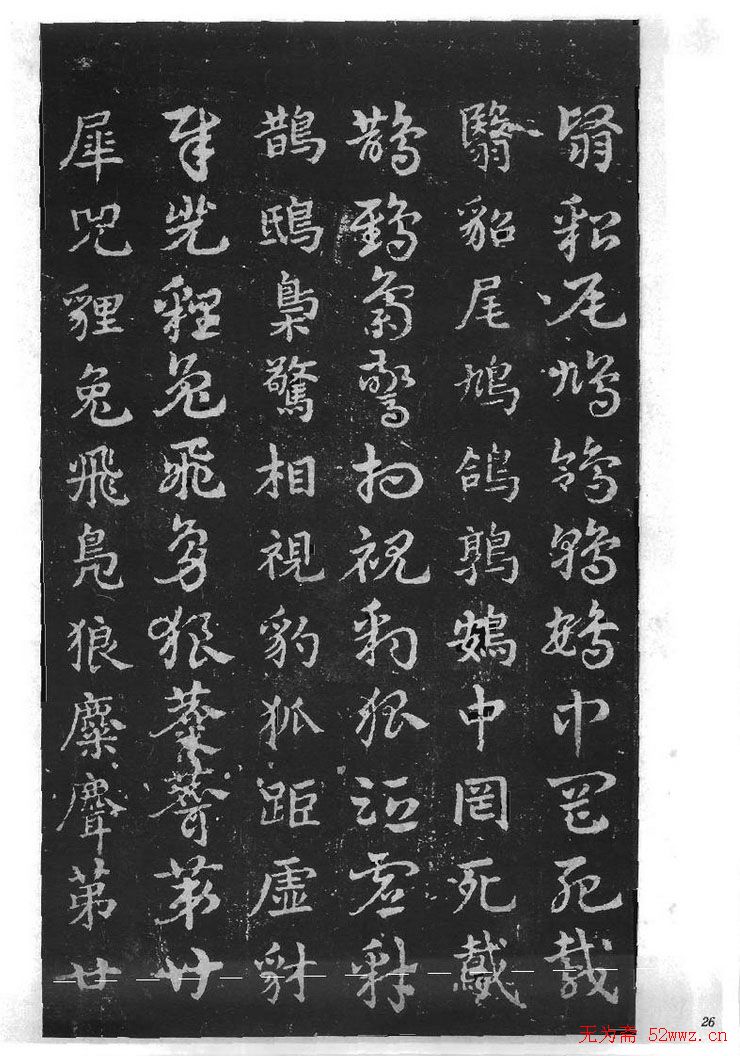 翳貂尾鳩鴿鶉鴳中罔死
翳貂尾鳩鴿鶉鴳中罔死
鵲鴟梟驚相視豹狐距虛豺
鵲鴟梟驚相視豹狐距虛豺
犀兕貍兔飛鳧狼麋第廿
犀兕貍兔飛鳧狼麋第廿
26
无为斋 52wwz.cn